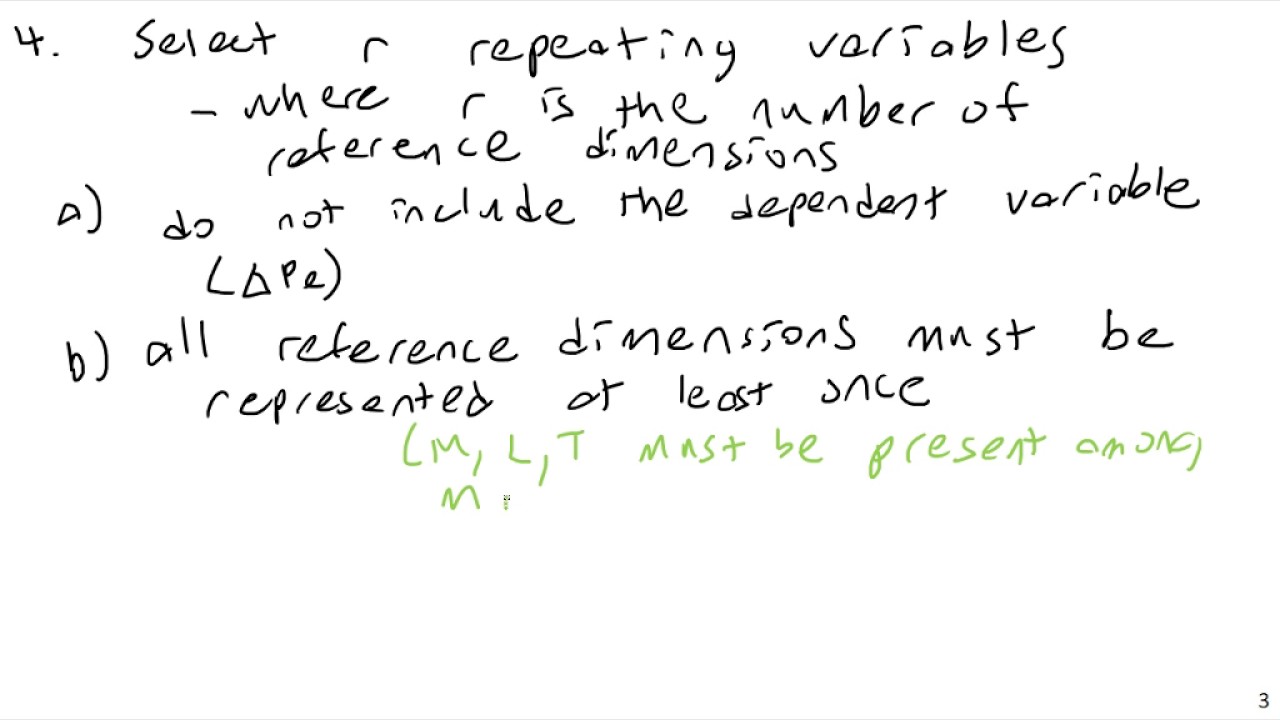 4. Select r repeating variables
- where r is the number of
reference dimensions
a) do not include the dependent variable
(ΔPe)
b) all reference dimensions must be
represented at least once
(M, L, T must be present among
M
3